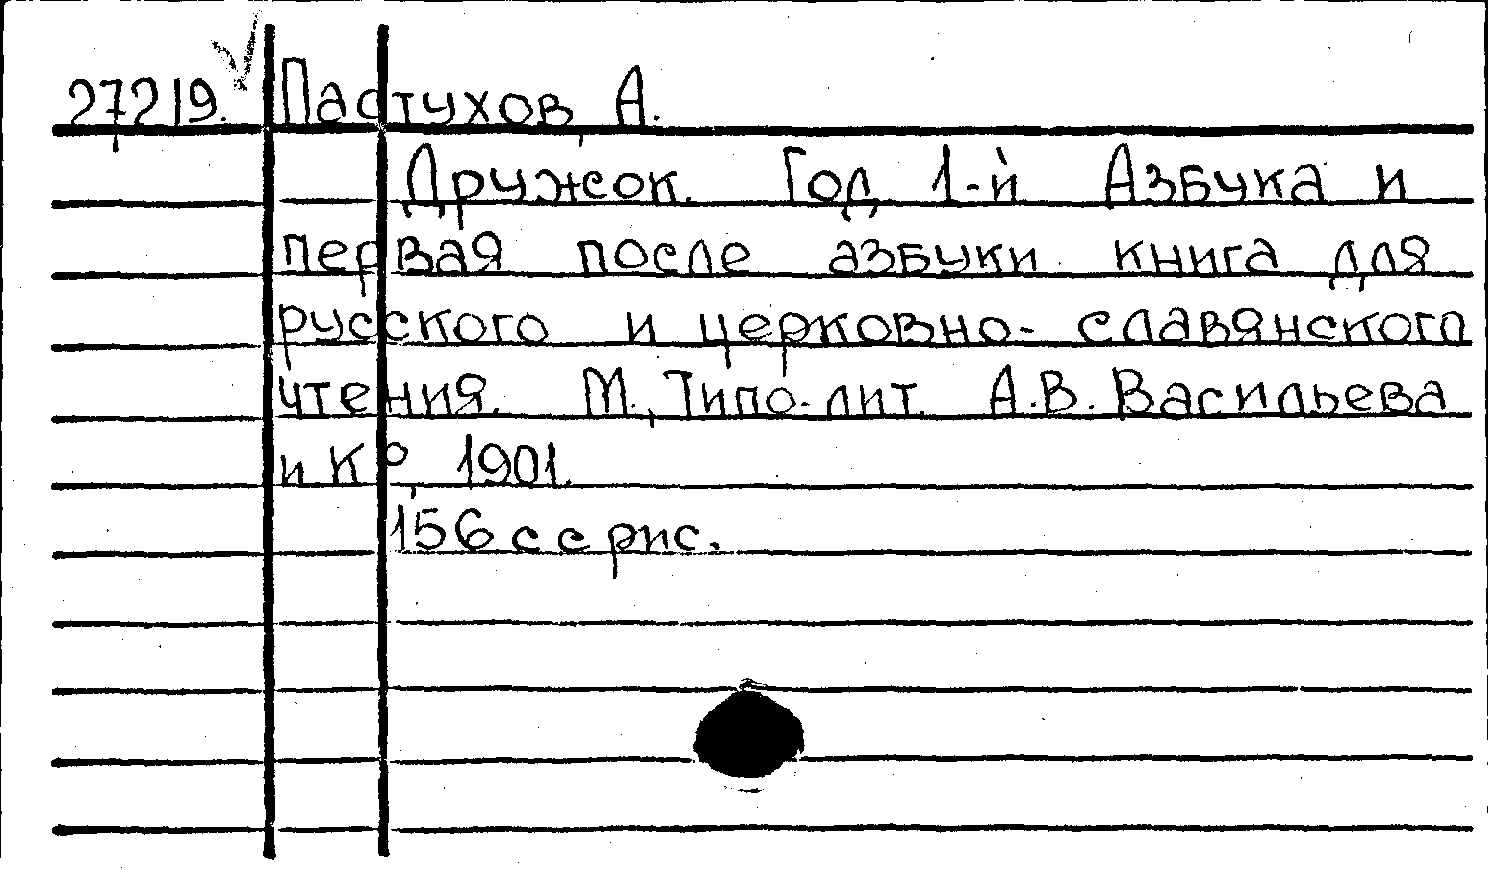 27219. Пастухов, А.
Дружок. Год 1-й Азбука и
первая после азбуки книга для
русского и церковно-славянского
чтения. М., Типо-лит. А.В. Васильева
и К°, 1901.
156 с с рис.